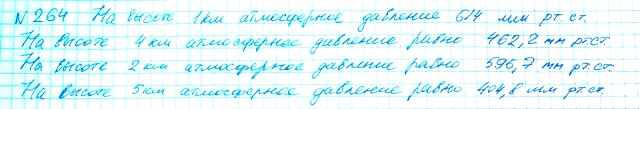 № 264 На высоте 1 км атмосферное давление 674 мм рт. ст.
На высоте 4 км атмосферное давление равно 462,2 мм рт.ст.
На высоте 2 км атмосферное давление равно 596,7 мм рт.ст.
На высоте 5 км атмосферное давление равно 404,8 мм рт.ст.